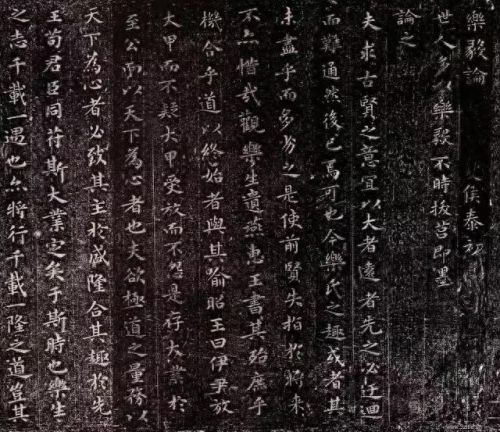 樂毅論 侯泰初
世人多以樂毅不時拔莒即墨
論之
夫求古賢之意宜以大者遠者先之必迂迴
而難通然後已焉可也今樂氏之趣或者其
未盡乎而多劣之是使前賢失指於將來
不亦惜哉觀樂生遺燕惠王書其殆庶乎
機合乎道以終始者與其喻昭王曰伊尹放
大甲而不疑大甲受放而不怨是存大業於
至公而以天下為心者也夫欲極道之量務以
天下為心者必致其主於盛隆合其趣於先
王苟君臣同符斯大業定矣于斯時也樂生
之志千載一遇也亦將行千載一隆之道豈其